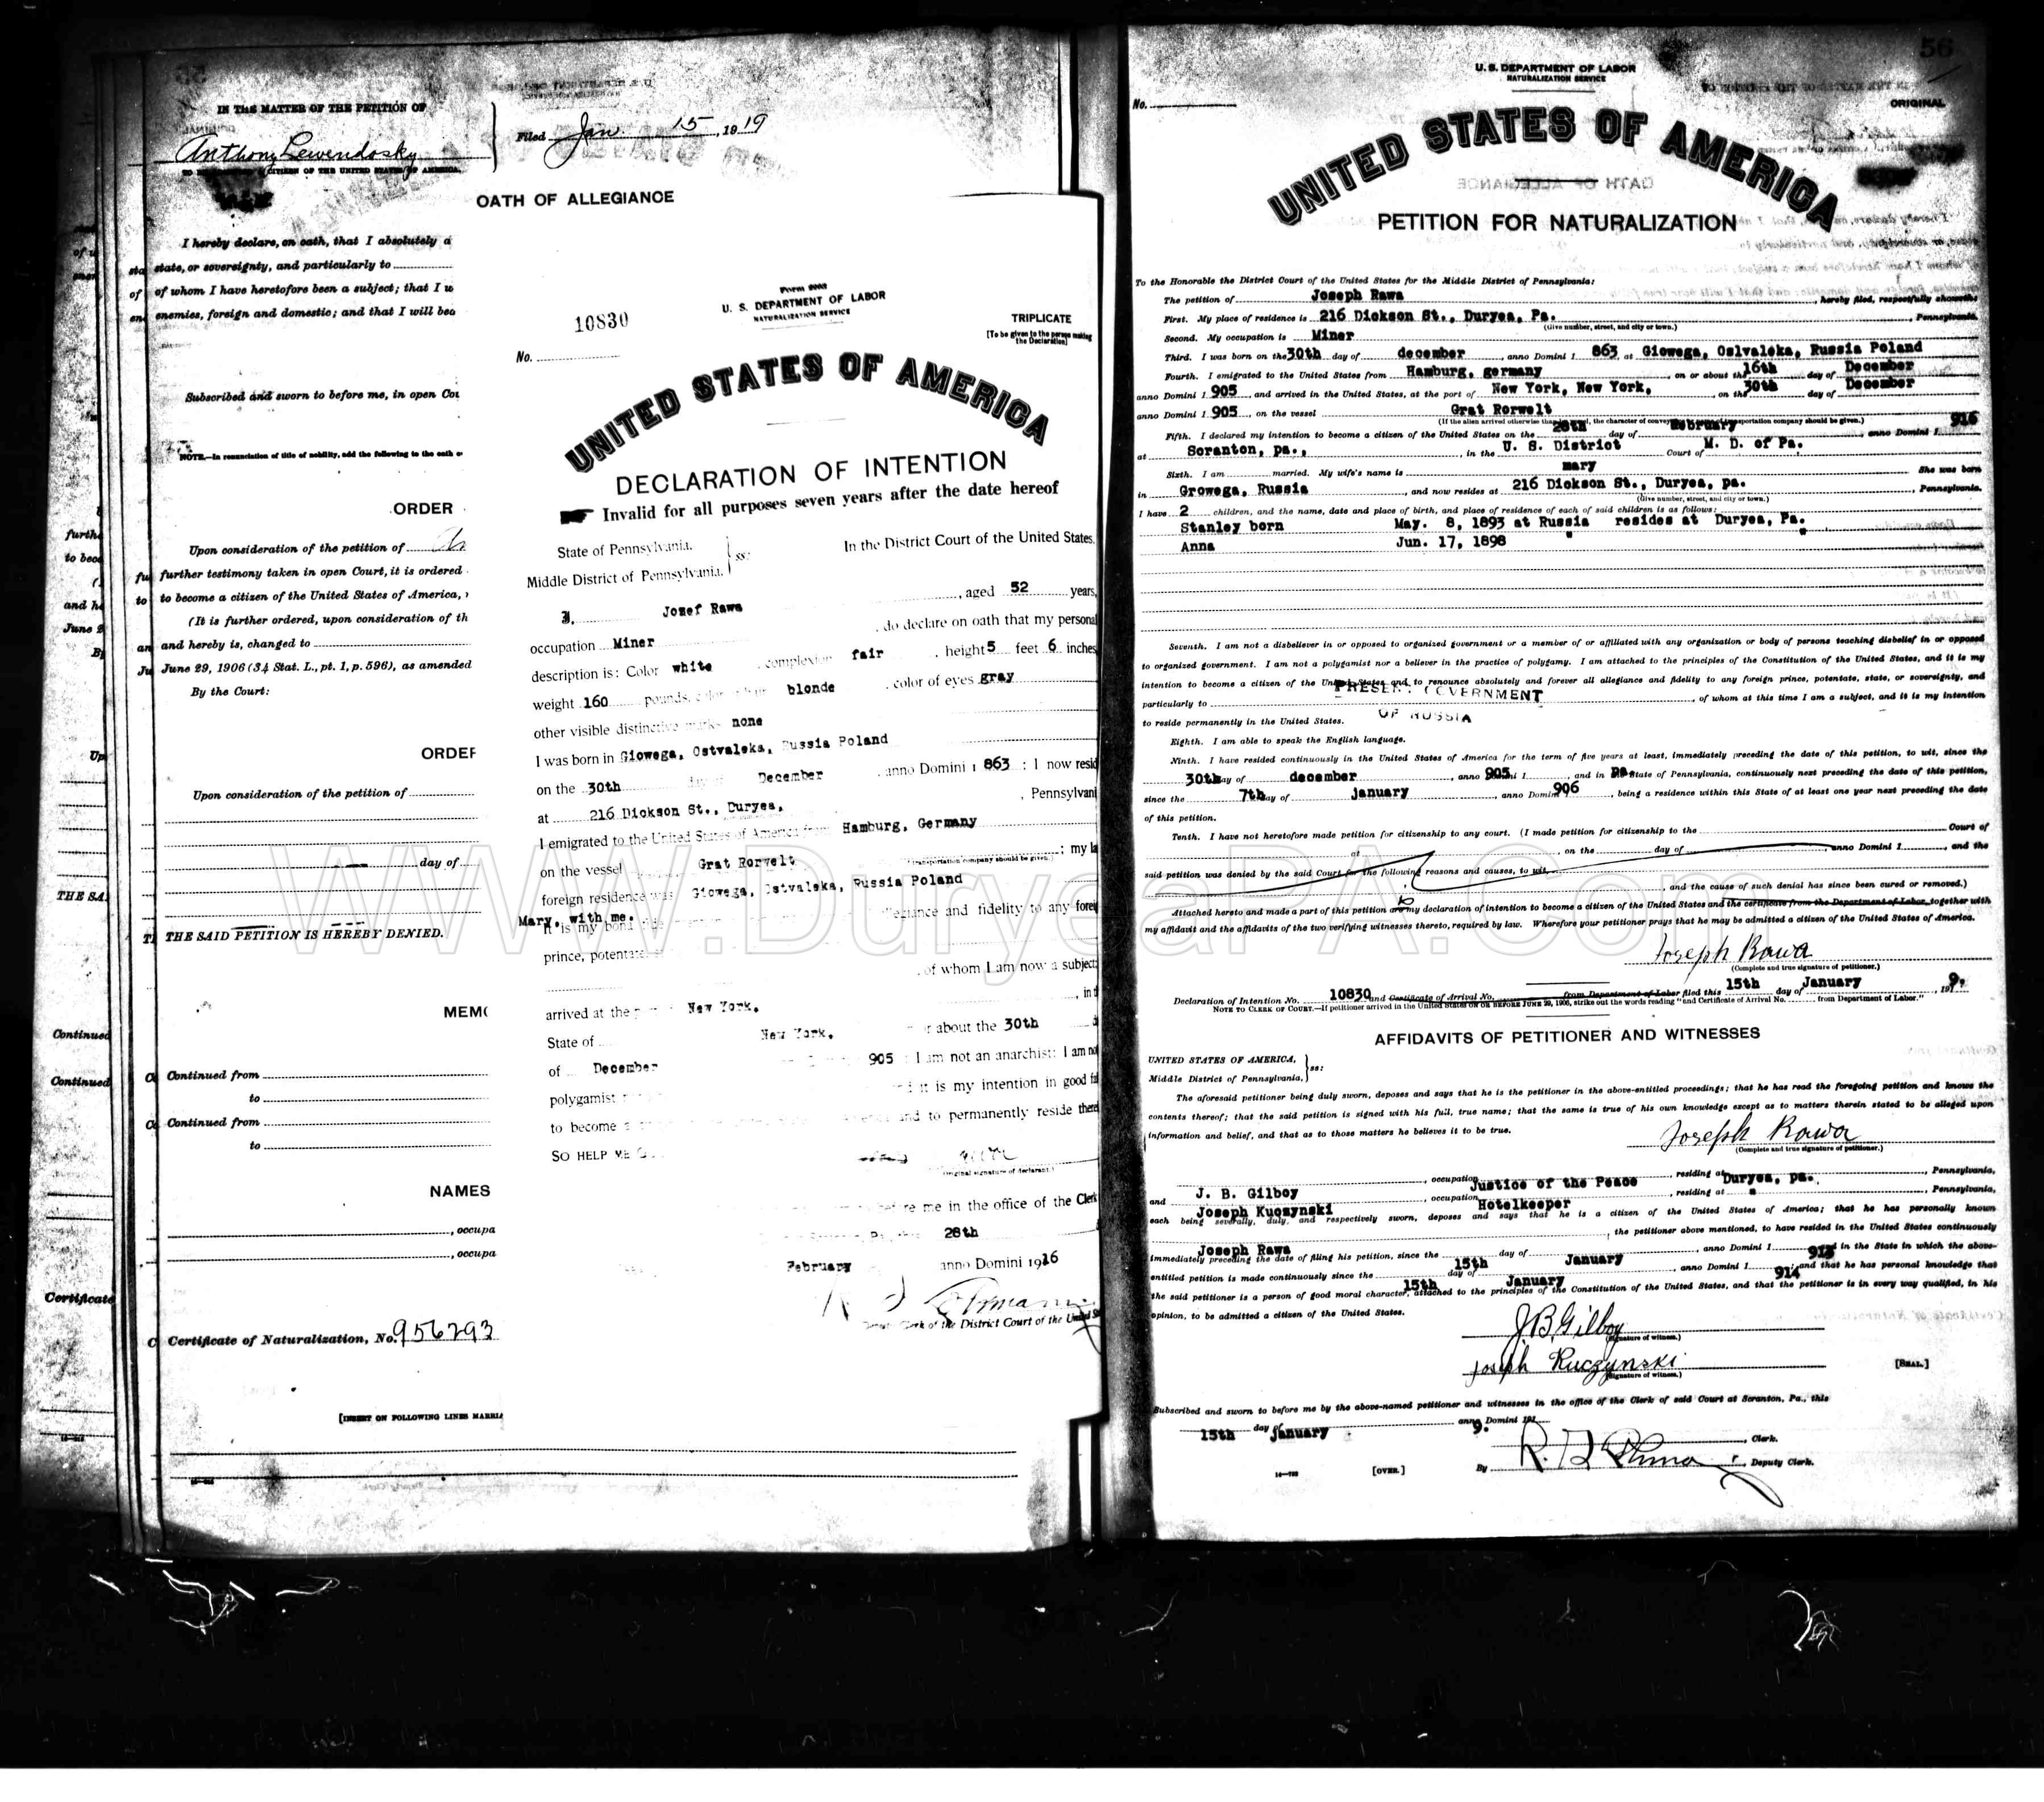 IN THE MATTER OF THE PETITION OF
Anthony Lewendosky
TO BE ADMITTED A CITIZEN OF THE UNITED STATES OF AMERICA.
Filed Jan. 15, 1919
OATH OF ALLEGIANCE
I hereby declare, on oath, that I absolutely a
state, or sovereignty, and particularly to
of whom I have heretofore been a subject; that I w
enemies, foreign and domestic; and that I will bea
Subscribed and sworn to before me, in open Cou
NOTE.—In renunciation of title of nobility, add the following to the oath o
ORDER
Upon consideration of the petition of An
further testimony taken in open Court, it is ordered
to become a citizen of the United States of America,
(It is further ordered, upon consideration of th
and hereby is, changed to
June 29, 1906 (34 Stat. L., pt. 1, p. 596), as amended
By the Court:
ORDER
Upon consideration of the petition of
day of
THE SAID PETITION IS HEREBY DENIED.
MEMO
Continued from
to
Continued from
to
NAMES
, occupa
, occupa
Certificate of Naturalization, No. 956293
[INSERT ON FOLLOWING LINES MARRIA
Form 2203
U. S. DEPARTMENT OF LABOR
NATURALIZATION SERVICE
10830
No.
TRIPLICATE
[To be given to the person making the Declaration]
UNITED STATES OF AMERICA
DECLARATION OF INTENTION
Invalid for all purposes seven years after the date hereof
State of Pennsylvania.
Middle District of Pennsylvania. ss:
In the District Court of the United States.
I, Jozef Rawa, aged 52 years,
occupation Miner, do declare on oath that my personal
description is: Color white, complexion fair, height 5 feet 6 inches
weight 160 pounds, color of hair blonde, color of eyes gray
other visible distinctive marks none
I was born in Giowega, Ostvaleka, Russia Poland
on the 30th day of December, anno Domini 1 863; I now resid
at 216 Dickson St., Duryea, , Pennsylvani
I emigrated to the United States of America from Hamburg, Germany
on the vessel Grat Rorwelt ; my la
transportation company should be given.)
foreign residence was Giowega, Ostvaleka, Russia Poland
Mary, with me.
It is my bona fide allegiance and fidelity to any foreig
prince, potentate,
, of whom I am now a subject;
arrived at the port New York, , in t
State of New York, or about the 30th d
of December 905; I am not an anarchist; I am no
polygamist and it is my intention in good fai
to become a and to permanently reside there
SO HELP ME G
(Original signature of declarant.)
before me in the office of the Clerk
28th
February anno Domini 1916
Deputy Clerk of the District Court of the United Sta
56
U. S. DEPARTMENT OF LABOR
NATURALIZATION SERVICE
No.
ORIGINAL
UNITED STATES OF AMERICA
PETITION FOR NATURALIZATION
To the Honorable the District Court of the United States for the Middle District of Pennsylvania:
The petition of Joseph Rawa, hereby filed, respectfully showeth:
First. My place of residence is 216 Dickson St., Duryea, Pa., Pennsylvania.
(Give number, street, and city or town.)
Second. My occupation is Miner
Third. I was born on the 30th day of december, anno Domini 1 863 at Giowega, Oslvaleka, Russia Poland
Fourth. I emigrated to the United States from Hamburg, germany, on or about the 16th day of December
anno Domini 1 905, and arrived in the United States, at the port of New York, New York, on the 30th day of December
anno Domini 1 905, on the vessel Grat Rorwelt
(If the alien arrived otherwise than by vessel, the character of conveyance or name of transportation company should be given.)
Fifth. I declared my intention to become a citizen of the United States on the 28th day of February, anno Domini 1 916
at Scranton, pa., , in the U. S. District Court of M. D. of Pa.
Sixth. I am married. My wife's name is mary She was born
in Growega, Russia, and now resides at 216 Dickson St., Duryea, pa., Pennsylvania.
(Give number, street, and city or town.)
I have 2 children, and the name, date and place of birth, and place of residence of each of said children is as follows:
Stanley born May. 8, 1893 at Russia resides at Duryea, Pa.
Anna Jun. 17, 1898 " "
Seventh. I am not a disbeliever in or opposed to organized government or a member of or affiliated with any organization or body of persons teaching disbelief in or opposed
to organized government. I am not a polygamist nor a believer in the practice of polygamy. I am attached to the principles of the Constitution of the United States, and it is my
intention to become a citizen of the United States and to renounce absolutely and forever all allegiance and fidelity to any foreign prince, potentate, state, or sovereignty, and
particularly to PRESENT GOVERNMENT OF RUSSIA, of whom at this time I am a subject, and it is my intention
to reside permanently in the United States.
Eighth. I am able to speak the English language.
Ninth. I have resided continuously in the United States of America for the term of five years at least, immediately preceding the date of this petition, to wit, since the
30th day of december, anno Domini 1 905, and in the State of Pennsylvania, continuously next preceding the date of this petition,
since the 7th day of january, anno Domini 906, being a residence within this State of at least one year next preceding the date
of this petition.
Tenth. I have not heretofore made petition for citizenship to any court. (I made petition for citizenship to the Court of
at , on the day of , anno Domini 1 , and the
said petition was denied by the said Court for the following reasons and causes, to wit,
, and the cause of such denial has since been cured or removed.)
Attached hereto and made a part of this petition are my declaration of intention to become a citizen of the United States and the certificate from the Department of Labor, together with
my affidavit and the affidavits of the two verifying witnesses thereto, required by law. Wherefore your petitioner prays that he may be admitted a citizen of the United States of America.
Joseph Rawa
(Complete and true signature of petitioner.)
Declaration of Intention No. 10830 and Certificate of Arrival No. from Department of Labor filed this 15th day of January, 191 9.
NOTE TO CLERK OF COURT.—If petitioner arrived in the United States ON OR BEFORE JUNE 29, 1906, strike out the words reading "and Certificate of Arrival No. from Department of Labor."
AFFIDAVITS OF PETITIONER AND WITNESSES
UNITED STATES OF AMERICA,
Middle District of Pennsylvania, ss:
The aforesaid petitioner being duly sworn, deposes and says that he is the petitioner in the above-entitled proceedings; that he has read the foregoing petition and knows the
contents thereof; that the said petition is signed with his full, true name; that the same is true of his own knowledge except as to matters therein stated to be alleged upon
information and belief, and that as to those matters he believes it to be true.
Joseph Rawa
(Complete and true signature of petitioner.)
J. B. Gilboy, occupation Justice of the Peace, residing at Duryea, pa., Pennsylvania,
and Joseph Kuczynski, occupation Hotelkeeper, residing at ", Pennsylvania,
each being severally, duly, and respectively sworn, deposes and says that he is a citizen of the United States of America; that he has personally known
Joseph Rawa, the petitioner above mentioned, to have resided in the United States continuously
immediately preceding the date of filing his petition, since the 15th day of January, anno Domini 1 913 in the State in which the above-
entitled petition is made continuously since the 15th day of January, anno Domini 1 914 and that he has personal knowledge that
the said petitioner is a person of good moral character, attached to the principles of the Constitution of the United States, and that the petitioner is in every way qualified, in his
opinion, to be admitted a citizen of the United States.
J. B. Gilboy
(Signature of witness.)
Joseph Kuczynski
(Signature of witness.)
[SEAL.]
Subscribed and sworn to before me by the above-named petitioner and witnesses in the office of the Clerk of said Court at Scranton, Pa., this
15th day of january anno Domini 191 9.
, Clerk.
By , Deputy Clerk.
[OVER.]
WWW.DuryeaPA.Com